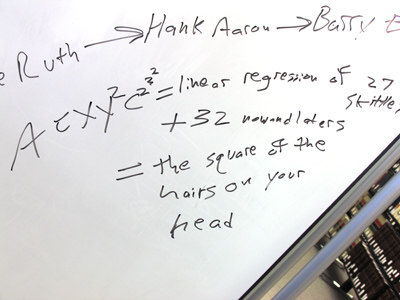 e Ruth → Hank Aaron → Barry B
A τ X Y² C^2^3^2 = linear regression of 27 skittles
+32 nowandlaters
= the square of the
hairs on your
head